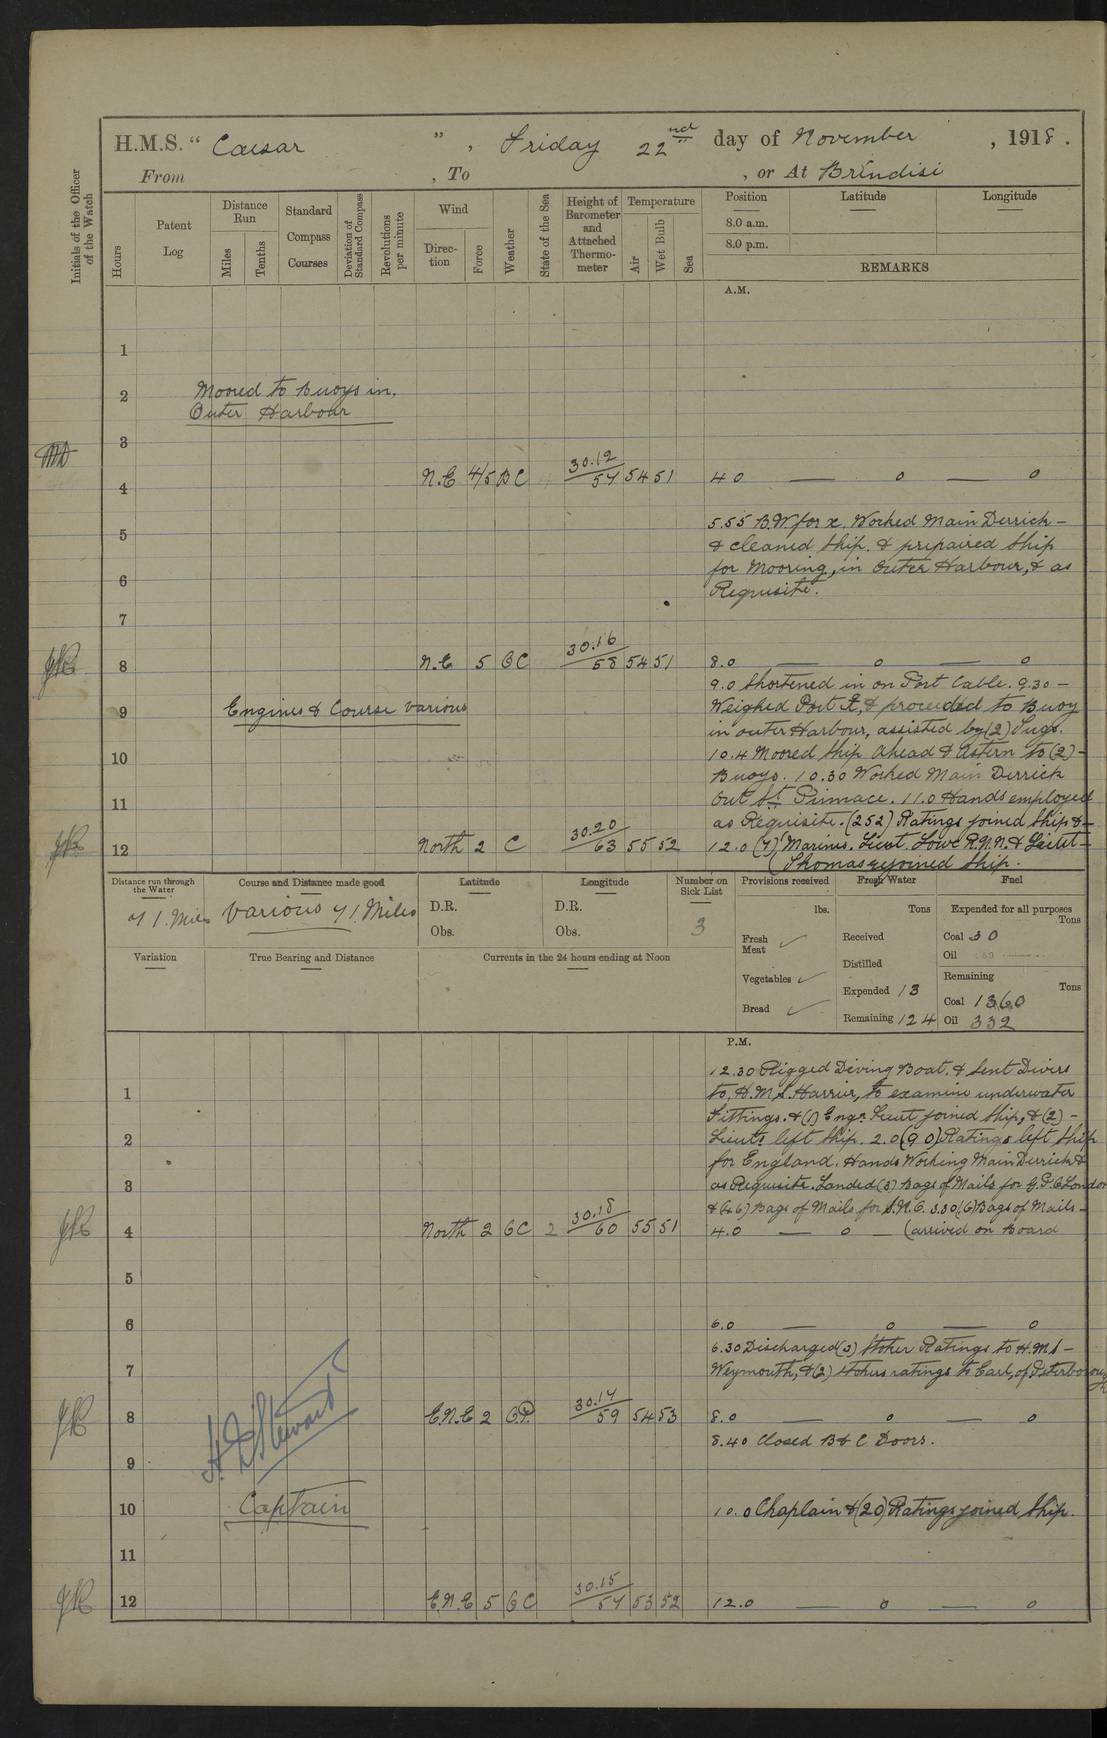 H.M.S. “ Caesar ” , Friday 22nd day of November , 1918 .
From , To , or At Brindisi
Initials of the Officer of the Watch
Hours
Patent Log
Distance Run
Miles
Tenths
Standard Compass Courses
Deviation of Standard Compass
Revolutions per minute
Wind
Direction
Force
Weather
State of the Sea
Height of Barometer and Attached Thermometer
Temperature
Air
Wet Bulb
Sea
Position
Latitude
Longitude
8.0 a.m.
8.0 p.m.
REMARKS
A.M.
1
2
Moored to Buoys in,
Outer Harbour
3
4 N.E 4/5 BC 30.12 57 54 51 4 0 — o — o
5
5.55 B.W. for x. Worked Main Derrick –
& cleaned Ship. & prepaired Ship
6
for Mooring, in Outer Harbour, & as
Requisite.
7
8 N.E 5 BC 30.16 58 54 51 8.0 — o — o
9.0 Shortened in on Port Cable. 9.30 –
9 Engines & Course Various
Weighed Port &, & proceeded to Buoy
in outer Harbour, assisted by (2) Tugs.
10
10.4 Moored Ship Ahead & Astern to (2) –
Buoys. 10.30 Worked Main Derrick
11
Out St. Pinnace. 11.0 Hands employed
as Requisite. (252) Ratings joined Ship & –
12 North 2 C 30.20 63 55 52 12.0 (7) Marines. Lieut. Lowe R.N.R. & Lieut –
(Thomas rejoined Ship.
Distance run through the Water
Course and Distance made good
Latitude
Longitude
Number on Sick List
Provisions received
Fresh Water
Fuel
71. Miles
Various 71. Miles
D.R.
Obs.
D.R.
Obs.
3
lbs.
Fresh Meat ✓
Vegetables ✓
Bread ✓
Tons
Received
Distilled
Expended 13
Remaining 124
Expended for all purposes
Tons
Coal 30
Oil
Remaining
Tons
Coal 1360
Oil 332
Variation
True Bearing and Distance
Currents in the 24 hours ending at Noon
P.M.
12.30 Rigged Diving Boat. & Sent Divers
1
to, H.M.S. Harrier, to examine underwater
Fittings. & (1) Engr. Lieut joined Ship, & (2) –
2
Lieuts left Ship. 2.0 (90) Ratings left Ship
for England. Hands Working Main Derrick &
3
as Requisite. Landed (3) Bags of Mails for G.P.O London
& (46) Bags of Mails for S.N.O. 3.30 (6) Bags of Mails –
4 North 2 BC 2 30.18 60 55 51 4.0 — o — (arrived on Board
5
6 6.0 — o — o
6.30 Discharged (3) Stoker Ratings to H.M.S –
7
Weymouth, & (2) Stokers ratings to Earl, of Peterborough
8 E.N.E 2 30.14 59 54 53 8.0 — o — o
8.40 Closed B & C Doors.
H. D. Stewart
9
10 Captain
10.0 Chaplain & (20) Ratings joined Ship.
11
12 E.N.E 5 BC 30.15 57 53 52 12.0 — o — o